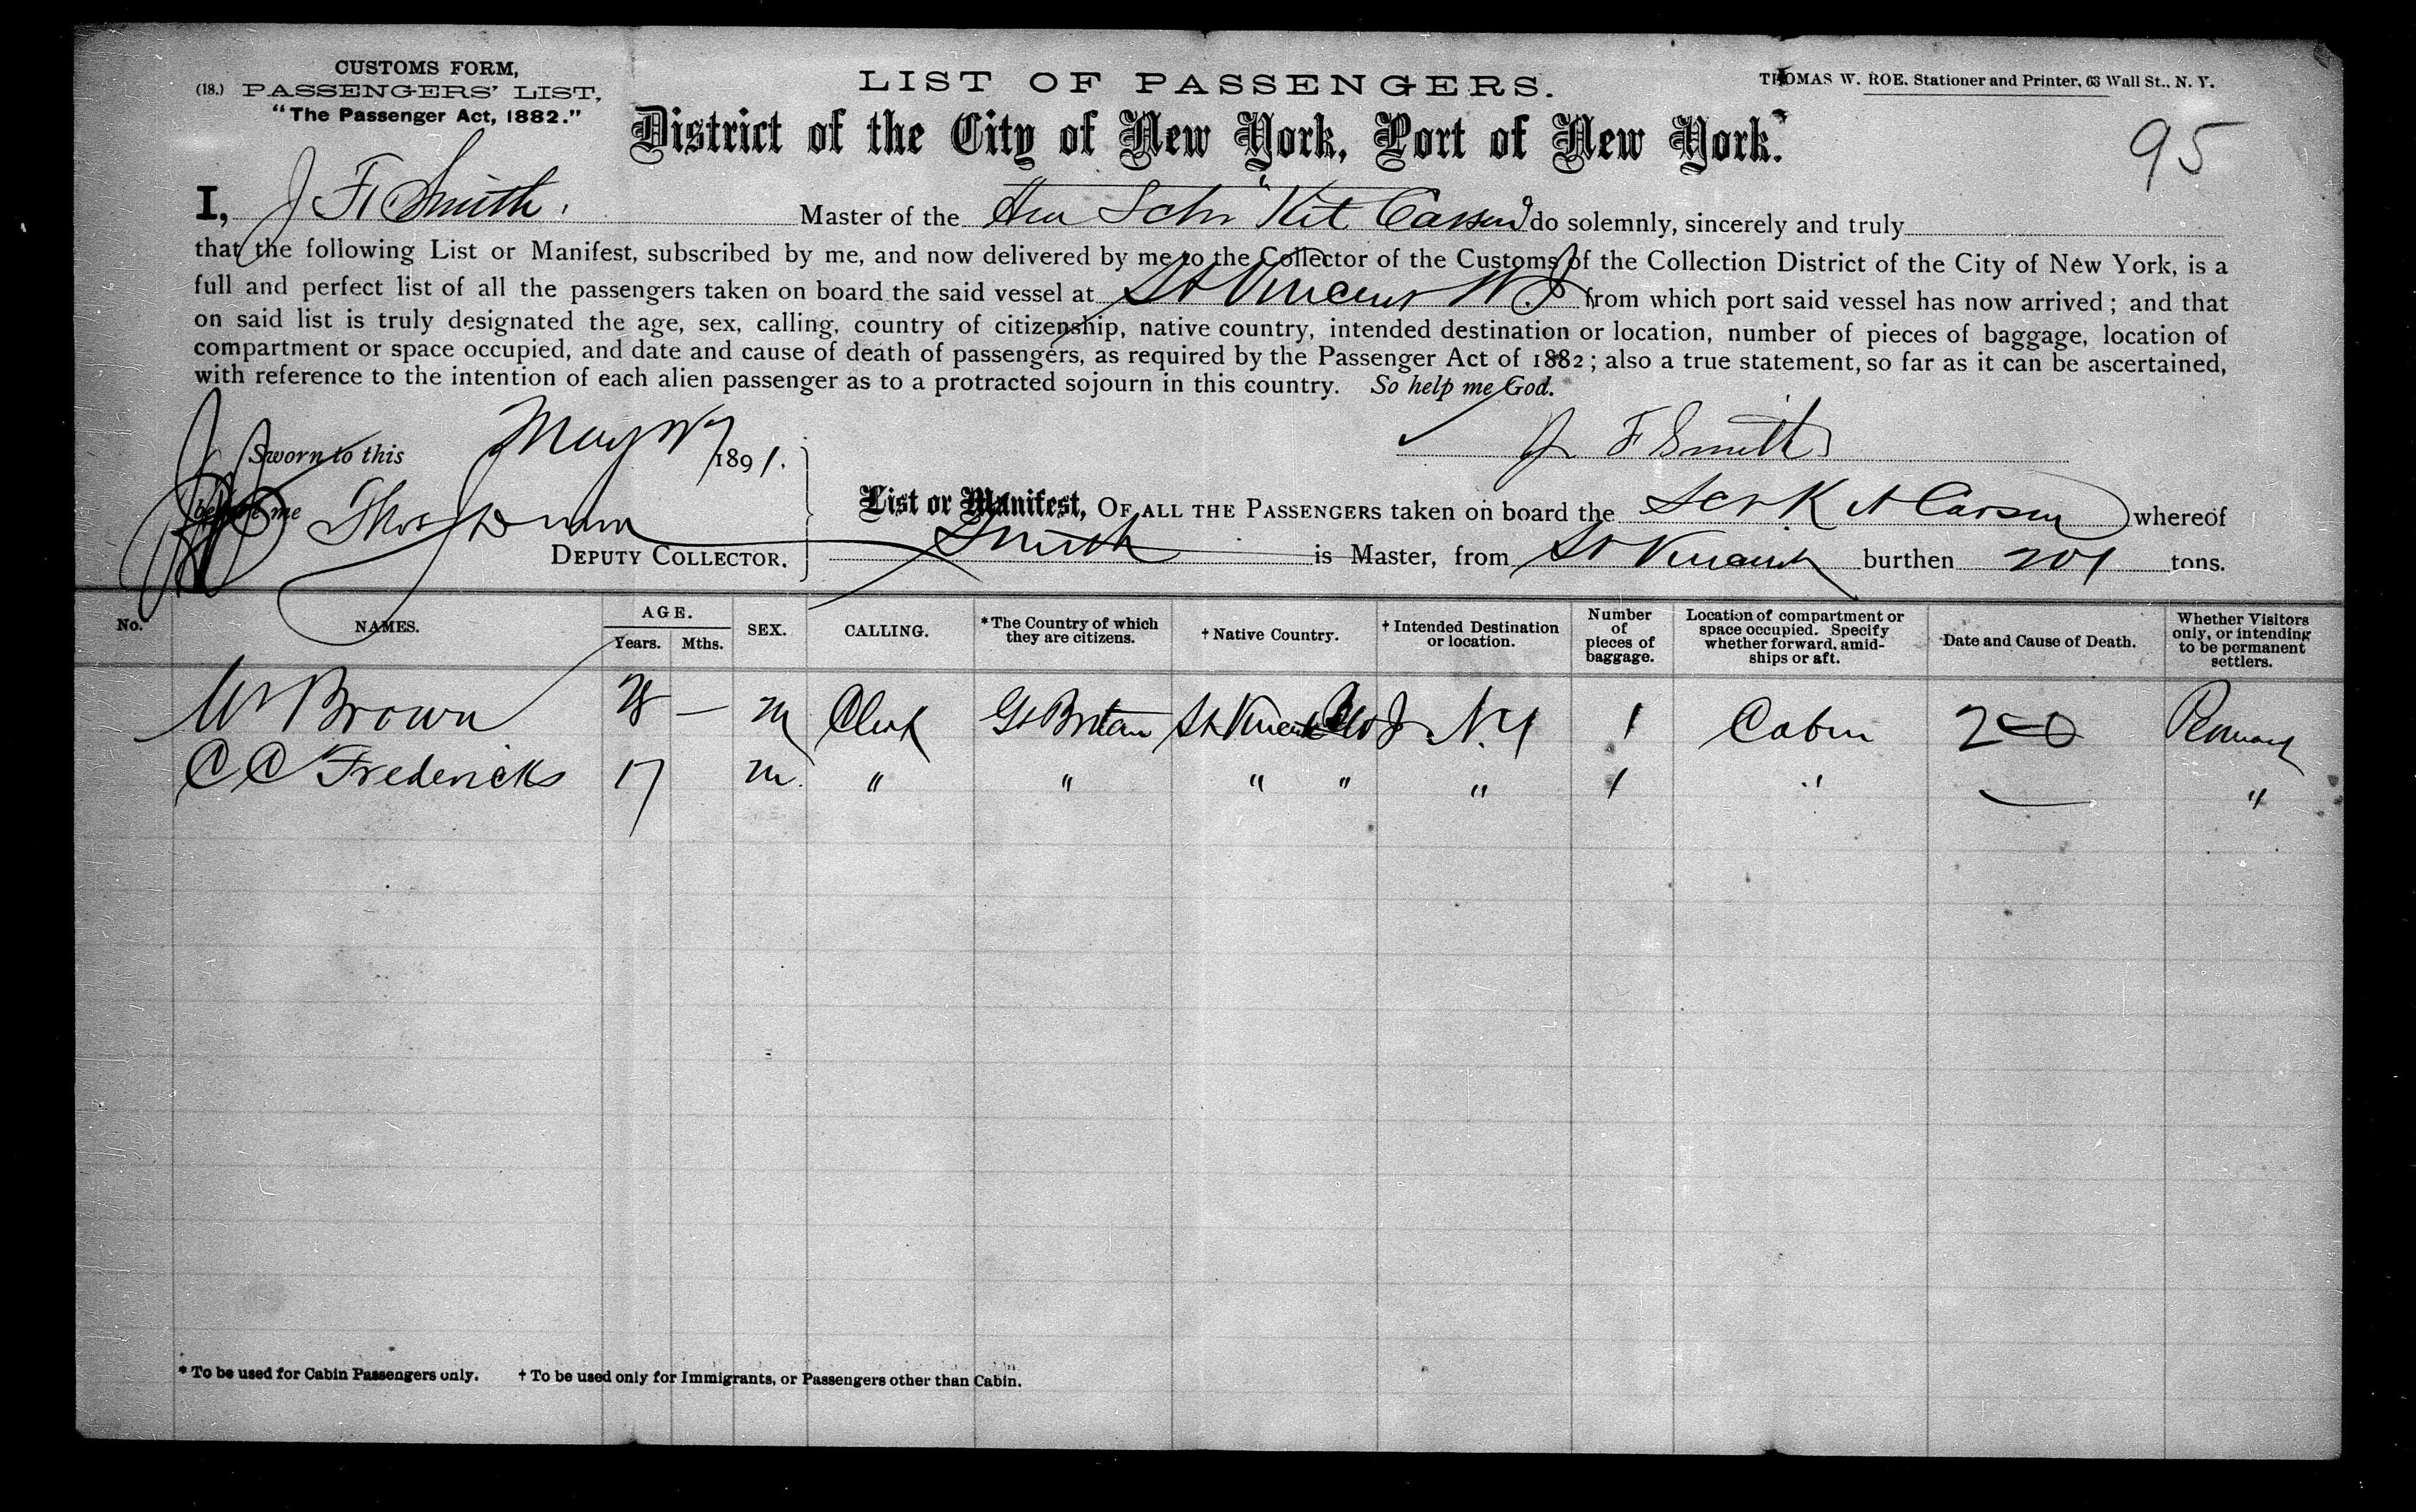 CUSTOMS FORM,
(18.) PASSENGERS' LIST,
"The Passenger Act, 1882."
LIST OF PASSENGERS.
THOMAS W. ROE, Stationer and Printer, 63 Wall St., N. Y.
District of the City of New York, Port of New York.
95
I, J F Smith, Master of the Am Schr "Kit Carson" do solemnly, sincerely and truly
that the following List or Manifest, subscribed by me, and now delivered by me to the Collector of the Customs of the Collection District of the City of New York, is a
full and perfect list of all the passengers taken on board the said vessel at St Vincent W I from which port said vessel has now arrived; and that
on said list is truly designated the age, sex, calling, country of citizenship, native country, intended destination or location, number of pieces of baggage, location of
compartment or space occupied, and date and cause of death of passengers, as required by the Passenger Act of 1882; also a true statement, so far as it can be ascertained,
with reference to the intention of each alien passenger as to a protracted sojourn in this country. So help me God.
J F Smith
Sworn to this May 1891.
before me Thos Dunn
DEPUTY COLLECTOR.
List or Manifest, OF ALL THE PASSENGERS taken on board the Sch Kit Carson whereof
Smith is Master, from St Vincent burthen 201 tons.
No. NAMES. AGE. Years. Mths. SEX. CALLING. *The Country of which they are citizens. † Native Country. † Intended Destination or location. Number of pieces of baggage. Location of compartment or space occupied. Specify whether forward, amidships or aft. Date and Cause of Death. Whether Visitors only, or intending to be permanent settlers.
Wm Brown 28 — m Clerk Gt Britain St Vincent W I N.Y 1 Cabin
C C Fredericks 17 m. " " " " " 1 " — "
* To be used for Cabin Passengers only. † To be used only for Immigrants, or Passengers other than Cabin.